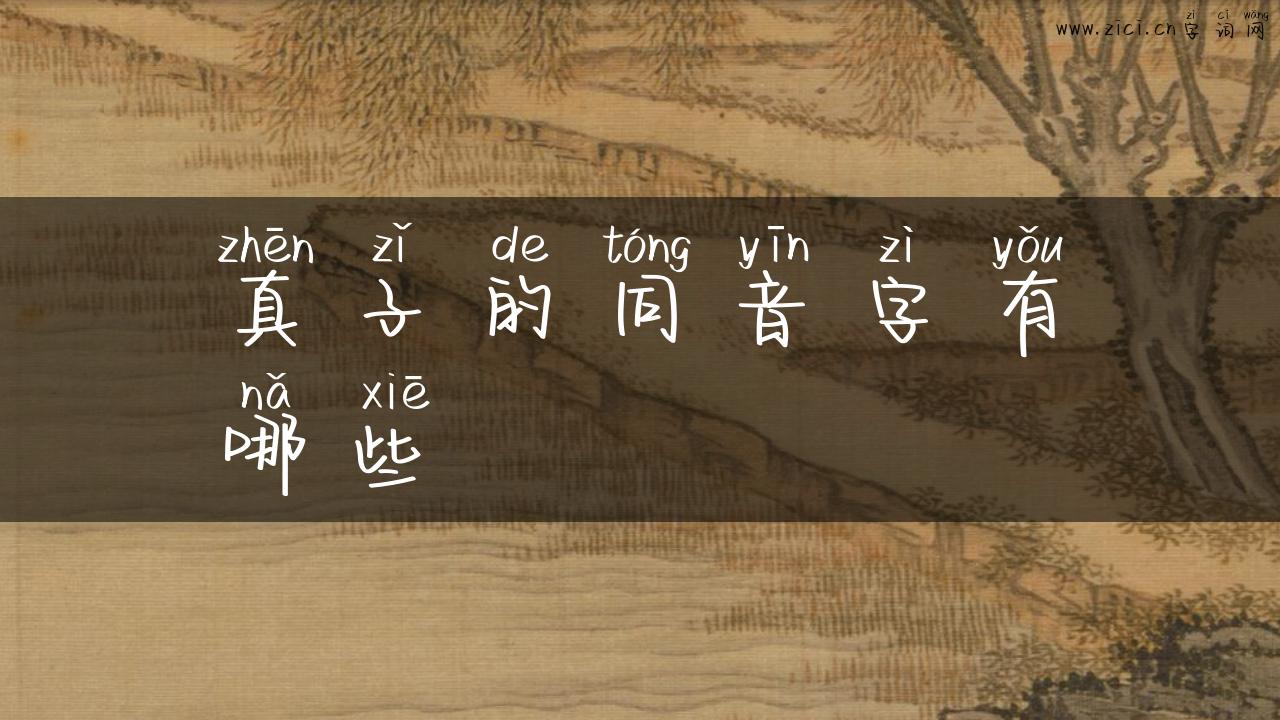 zì cí wǎng
www.zici.cn 字词网
zhēn zǐ de tóng yīn zì yǒu
真子的同音字有
nǎ xiē
哪些